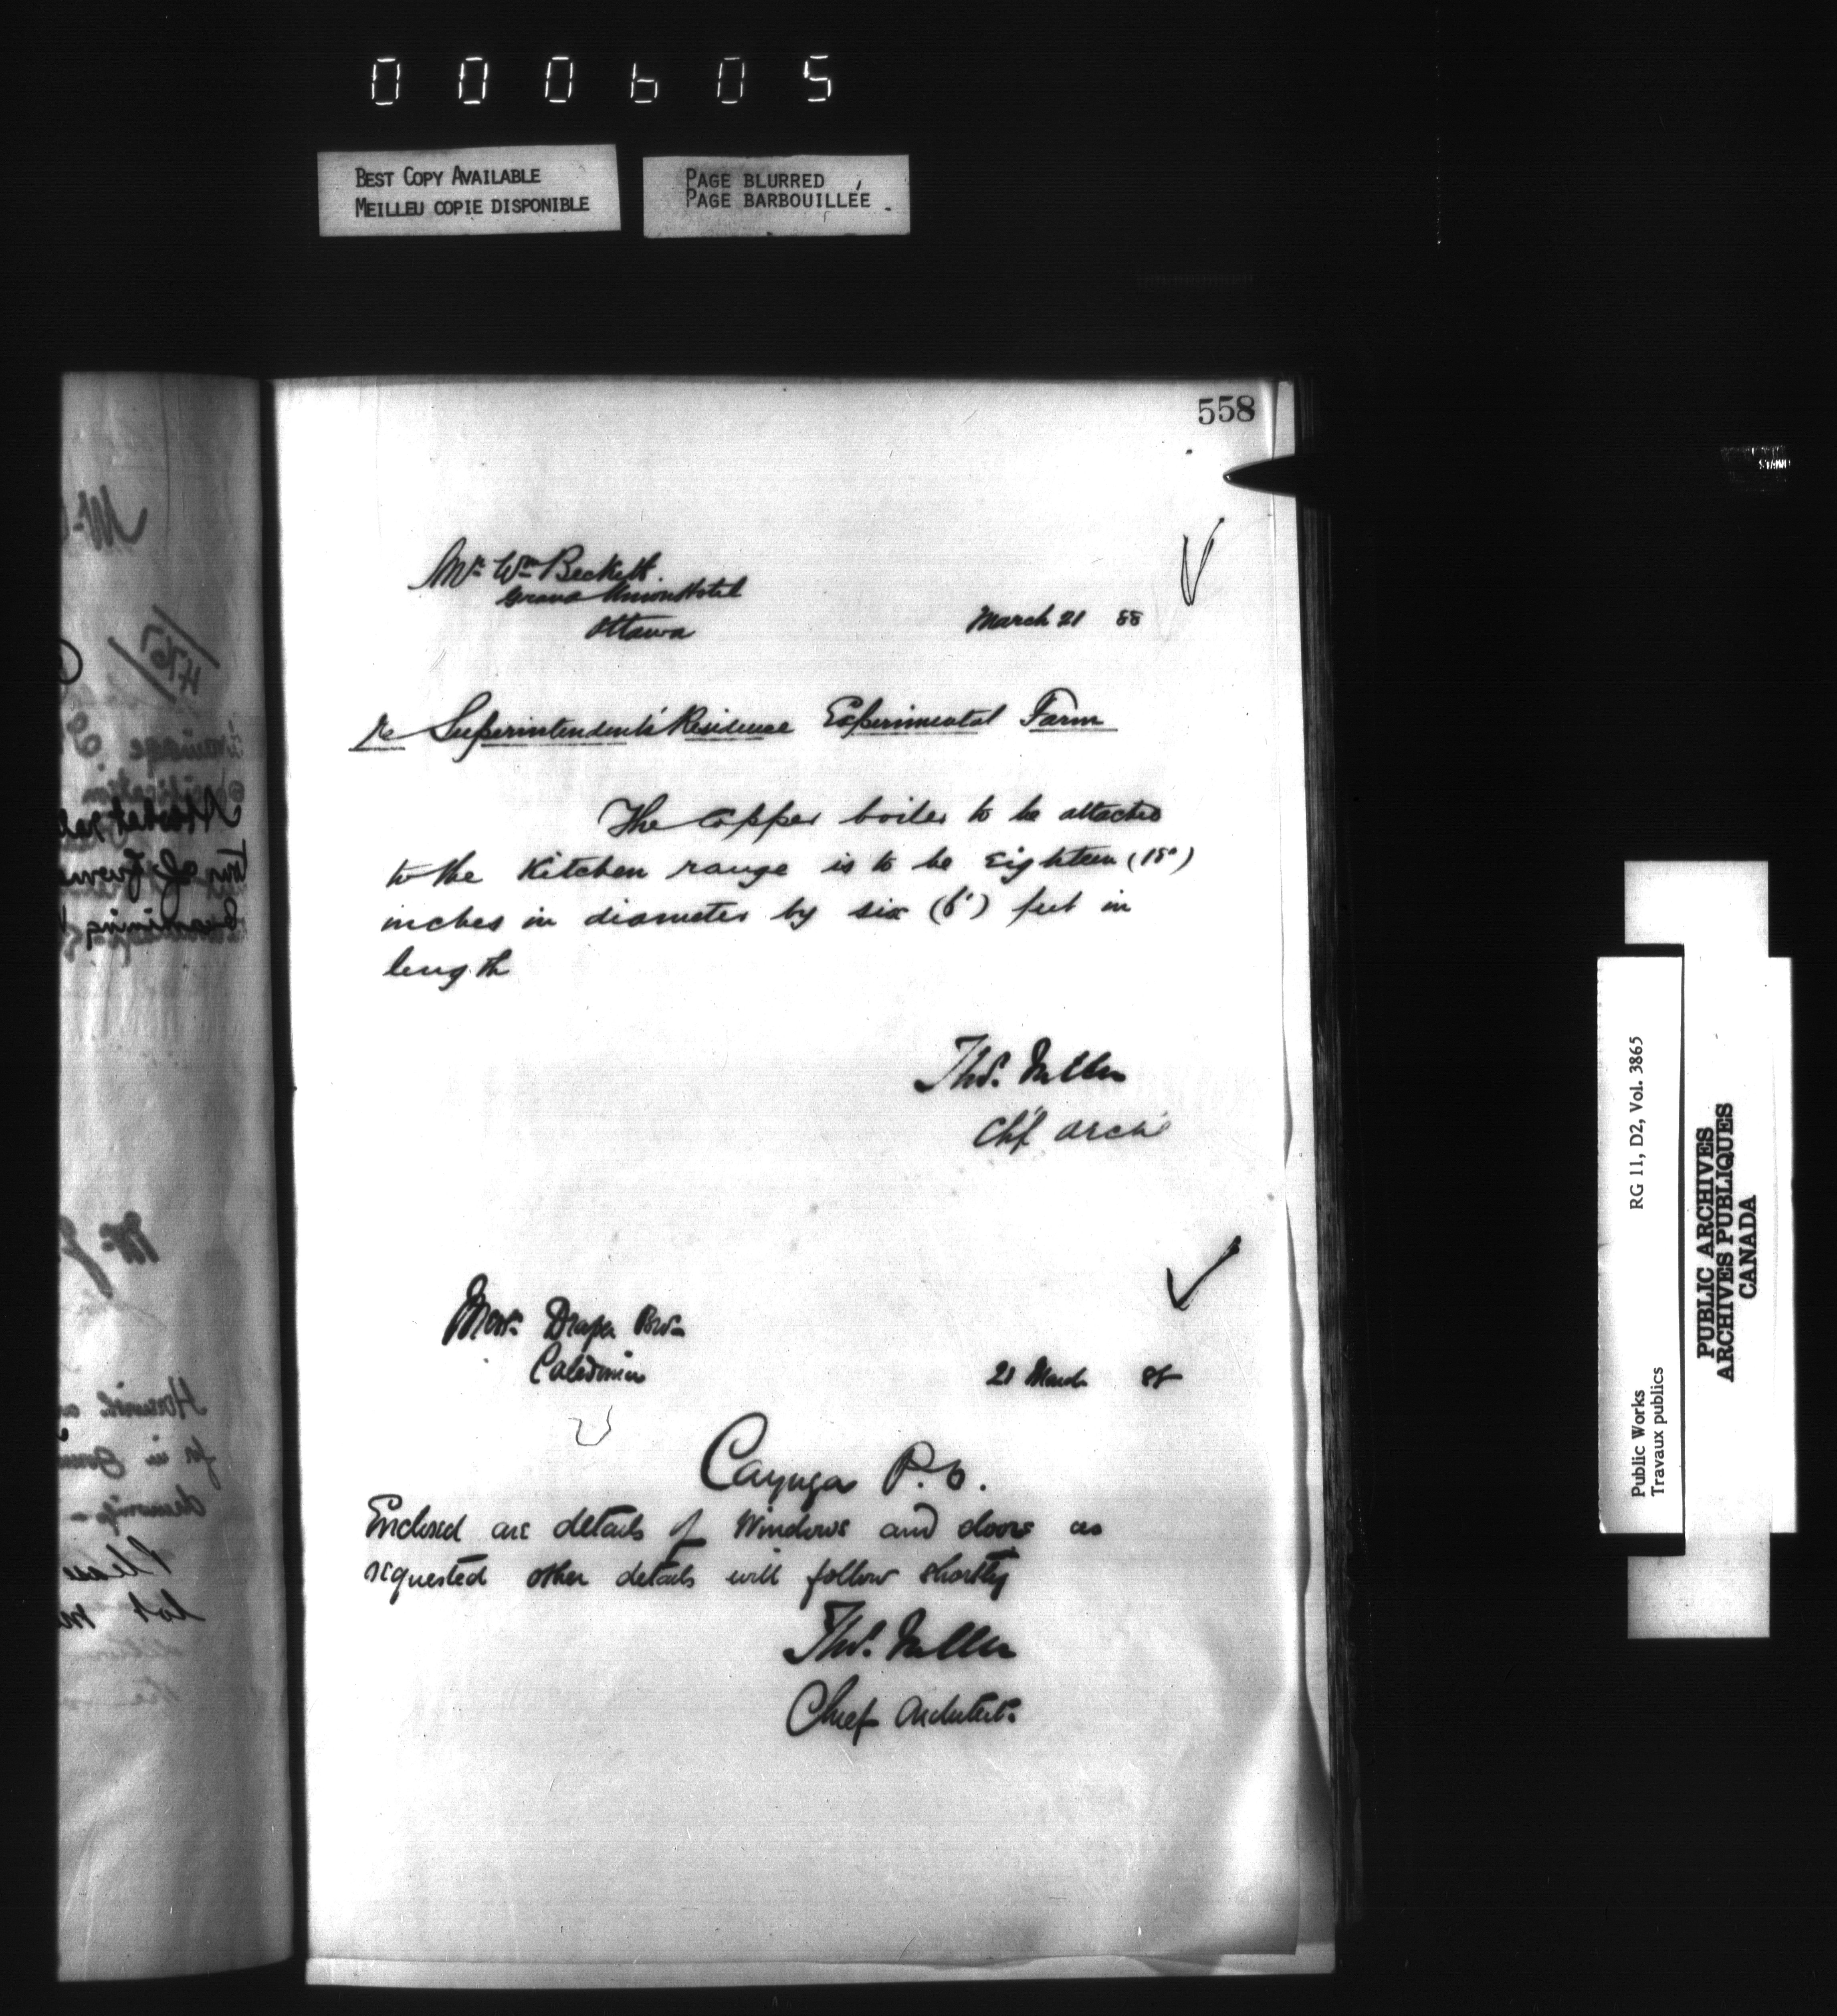 000605
BEST COPY AVAILABLE
MEILLEU COPIE DISPONIBLE
PAGE BLURRED
PAGE BARBOUILLÉE
558
Mr Wm Beckett.
Grand Union Hotel
Ottawa
March 21 88
re Superintendents' Residence Experimental Farm
The Copper boiler to be attached
to the Kitchen range is to be Eighteen (18")
inches in diameter by six (6') feet in
length
Thos. Fuller
Chf Archt
Messrs Draper Bros
Caledonia
21 March 88
Cayuga P.O.
Enclosed are details of Windows and doors as
requested other details will follow shortly
Thos. Fuller
Chief Architect.
Public Works
Travaux publics
RG 11, D2, Vol. 3865
PUBLIC ARCHIVES
ARCHIVES PUBLIQUES
CANADA